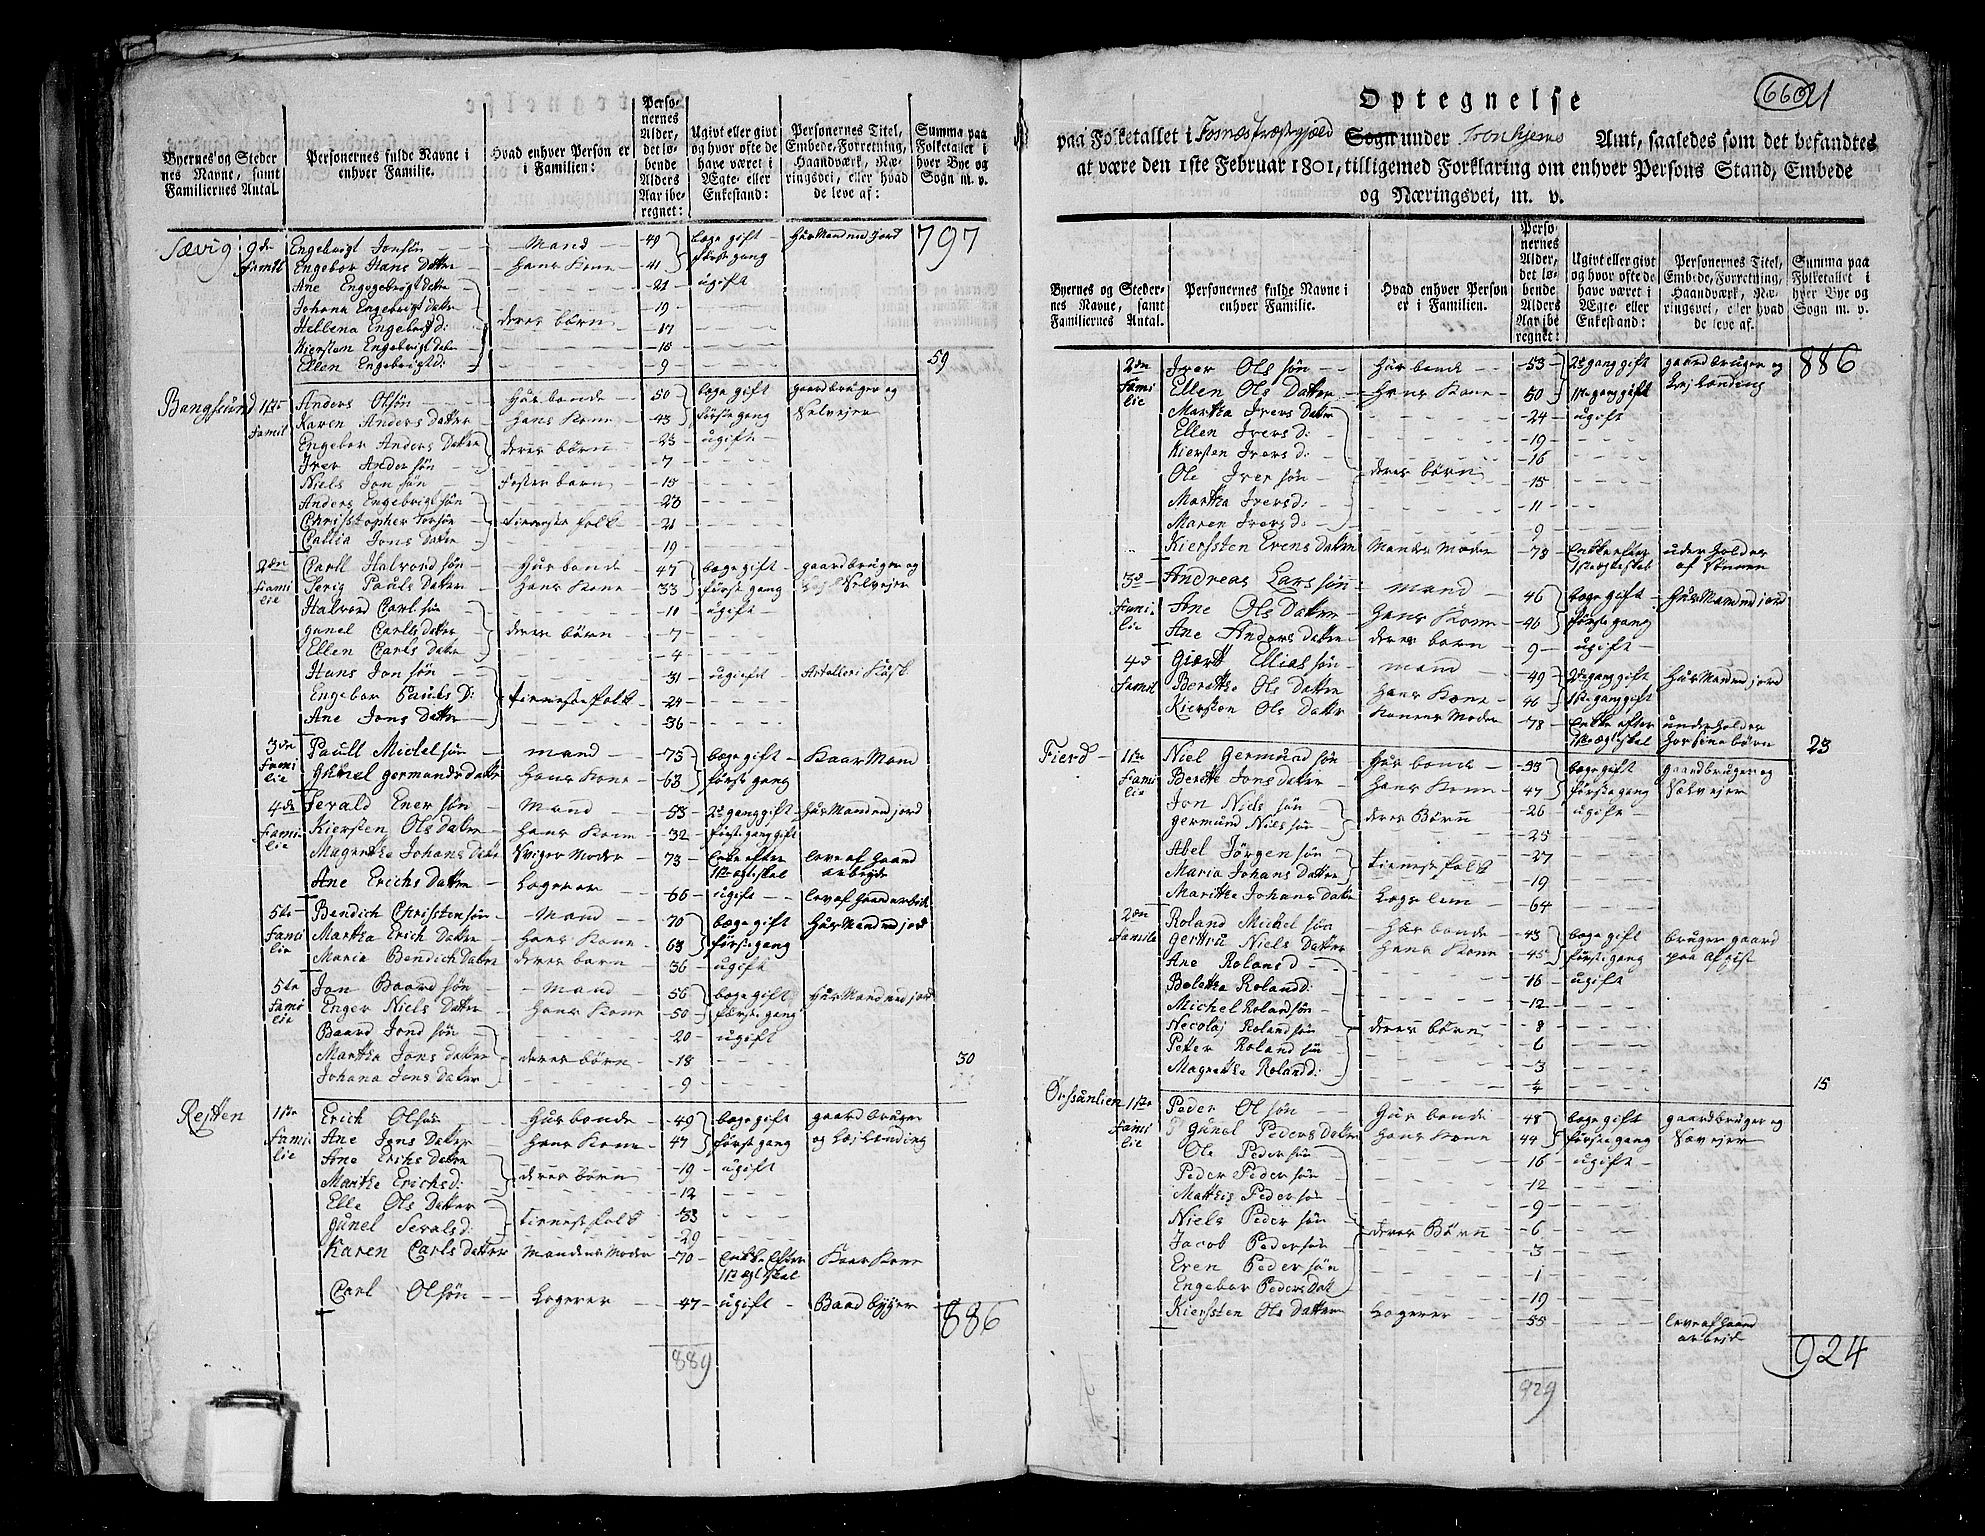 Byernes og Steder nes Navne, samt Familiernes Antal.
Personernes fulde Navne i enhver Familie.
Hvad enhver Person er i Familien:
Perso- nernes Alder, det lø- bende Alders Aar ibe- regnet:
Ugivt eller givt og hvor ofte de have været i Ægte- eller Enkestand:
Personernes Titel, Embede, Forretning, Haandværk, Næ- ringsvei, eller hvad de leve af:
Summa paa Folketallet i hver Bye og Sogn m. v.
Sævig 9de Famil Engebrigt Jonsøn Mand 49 bege gift Huusmand med Jord 797
Engebor Hans Datter hans Kone 41 første gang
Ane Engegebrigt datter 21 ugift
Johana Engebrigt datter 19
Hellena Engebrigt d: deres børn 17
Kiersten Engebrigt datr 15
Ellen Engebrigt d: 9 59
Bangsund 1ste Famil Anders Olsøn Husbonde 50 bege gift gaardbruger og
Karen Anders datter hans Kone 43 første gang selvejer
Engebor Anders Datter deres børn 23 ugift
Iver Andersøn 7
Niels Jonsøn Foster barn 15
Anders Engebrigtsøn 23
Christopher Torsøn tieneste folk 21
Jons Datter 19
2den Familie Carll Halvordsøn Husbonde 47 bege gift gaardbruger og
Pauls Datter hans Kone 33 første gang Selvejer
Halvord Carlsøn 10 ugift
gunel Carls datter deres børn 7
Ellen Carls datr 4
Hans Jonsøn 31 ugift
Engebor Pauls D: tieneste folk 24
Ane Jons Datter 36
3de Familie Paull Michelsøn mand 75 bege gift Kaar Mand
gunel germunds datter hans Kone 63 første gang
4de Familie Enersøn Mand 53 2den gang gift Huusmand med jord
Kiersten Ols Datter hans Kone 32 første gang gift
Magrethe Johans datter Sviger Moder 73 Enke efter leve af haand
1ste ægteskab arbejde
Ane Erichs Datter Logerer 66 ugift lev af haandarbeit
5te Familie Bendich Christensøn Mand 70 bege gift Huusmand med jord
Martha Erich Datter hans Kone 63 første gang
Maria Bendich Datter deres barn 36 ugift
5te Familie Jon Baardsøn Mand 56 bege gift Huusmand med jord
Enger Niels Datter hans Kone 50 første gang
Baard Jondsøn 20 ugift
Martha Jons datter deres børn 18 30
Johana Jons Datter 9
Resten 1ste Familie Erich Olsøn Husbonde 49 bege gift gaardbruger
Ane Jons Datter hans Kone 47 første gang og Lejlending
Ane Erichs Datter deres børn 19 ugift
Marthe Erichs d: 12
Elle Ols Datter tieneste folk 33
gunel d: 29
Karen Carls datter Mandens Moder 70 Enke Efter Kaar Kone
1ste ægteskab
Carl Olsøn Logerer 47 ugift Baad bygger
886
889
6601
Optegnelse
paa Folketallet i Fosnæs Præstegjæld Sogn under Tronhjems Amt, saaledes som det befandtes
at være den 1ste Februar 1801, tilligemed Forklaring om enhver Persons Stand, Embede
og Næringsvei, m. v.
Byernes og Steder- nes Navne, samt Familiernes Antal.
Personernes fulde Navne i enhver Familie.
Hvad enhver Person er i Familien.
Perso- nernes Alder, det lø- bende Alders Aar ibe regnet:
Ugivt eller givt og hvor ofte de have været i Ægte- eller Enkestand:
Personernes Titel, Embede, Forretning, Haandværk, Næ- ringsvei, eller hvad de leve af.
Summa paa Folketallet i hver Bye og Sogn m. v.
2den Familie Iver Olssøn Husbonde 53 2de gang gift gaardbruger og 886
Ellen Ols Datter hans Kone 50 1ste gang gift Lejlending
Martha Ivers Datter 24 ugift
Ellen Ivers d: 19
Kiersten Ivers d: 16
Ole Iversøn deres børn 15
Martha Ivers d: 11
Maren Ivers d: 9
Kiersten Evens datter Mandes Moder 78 Enke efter underholdes
1ste ægteskab af Sønnen
3de Familie Andreas Larssøn Mand 46 bege gift Huusmand med jord
Ane Ols Datter Hans Kone 46 første gang
Ane Anders datter deres barn 9 ugift
4de Famil Elliassøn mand 49 2de gang gift Huusmand med jord
Berethe Ols Datter hans Kone 46 1ste gang gift
Kiersten Ols Datter Konens Moder 78 Enke efter underholdes
1ste ægteskab børn 23
Fierd 1ste Familie Niel Germundsøn Husbonde 53 bege gift gaardbruger og
Berethe Jons datter hans Kone 47 første gang Selvejer
Jon Nielssøn deres Børn 26 ugift
germund Nielssøn 25
Abel Jørgensøn tieneste folk 27
Maria Johans Datter 19
Marithe Johans datter Logslem 64
2den Familie Roland Michelsøn Husbonde 43 bege gift bruger gaard
gertru Niels Datter hans Kone 45 første gang paa
Ane Rolands d 16 ugift
Beletha Roland d: 12
Michel Rolandsøn 8
Necolaj Rolandsøn deres børn 6
Petter Rolandsøn 3
Magrethe Roland d: ¼ 15
1ste Familie Peder Olsøn Husbonde 48 bege gift gaardbruger og
gunel Peders Datter hans Kone 44 første gang Selvejer
Ole Pedersøn 16 ugift
Peder Pedersøn 12
Mathis Pedersøn 9
Niels Pedersøn deres Børn 6
Jacob Pedersøn 3
Eren Pedersøn 1
Engebor Peders Datt 19
Kiersten Ols Datter Logerer 55 leve af haand
arbejde
924
929